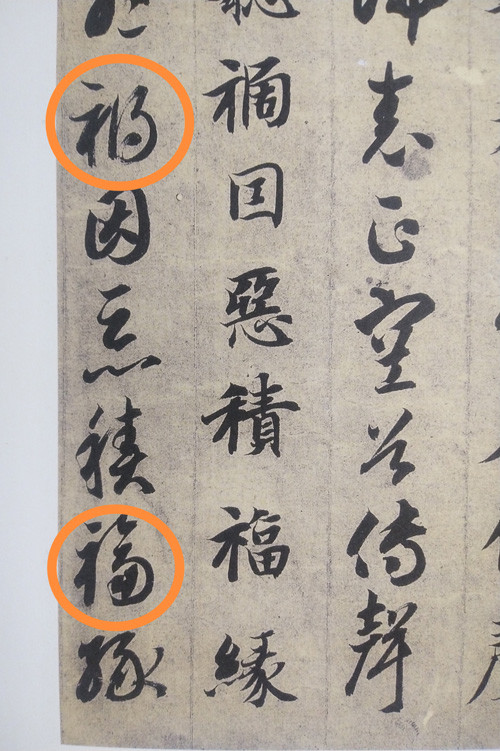 表正空谷傳聲
禍囙惡積福緣
禍因惡積福緣